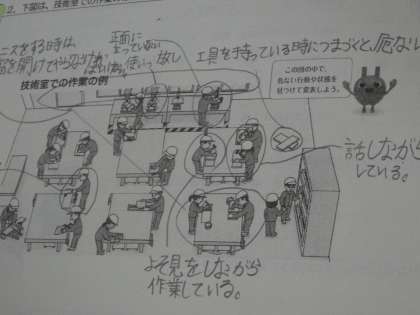 2. 下図は、技術室での作業の
ニスをする時は
窓を開けて
正面に
立っていない
使いっ放し
工具を持っている時につまづくと、危ない
技術室での作業の例
この図の中で、
危ない行動や状態を
見つけて発表しよう。
話しながら
している。
よそ見をしながら
作業している。